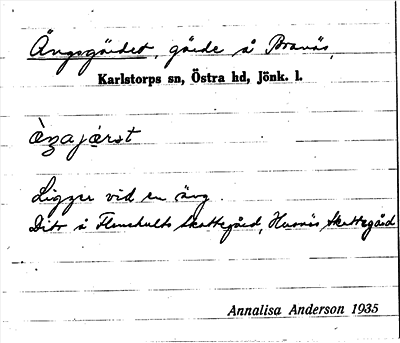 Ängsgärdet, gärde å Branäs,
Karlstorps sn, Östra hd, Jönk. l.
Ligger vid en äng.
Dito å Flenshults Skattegård, Husnäs Skattegård
Annalisa Anderson 1935